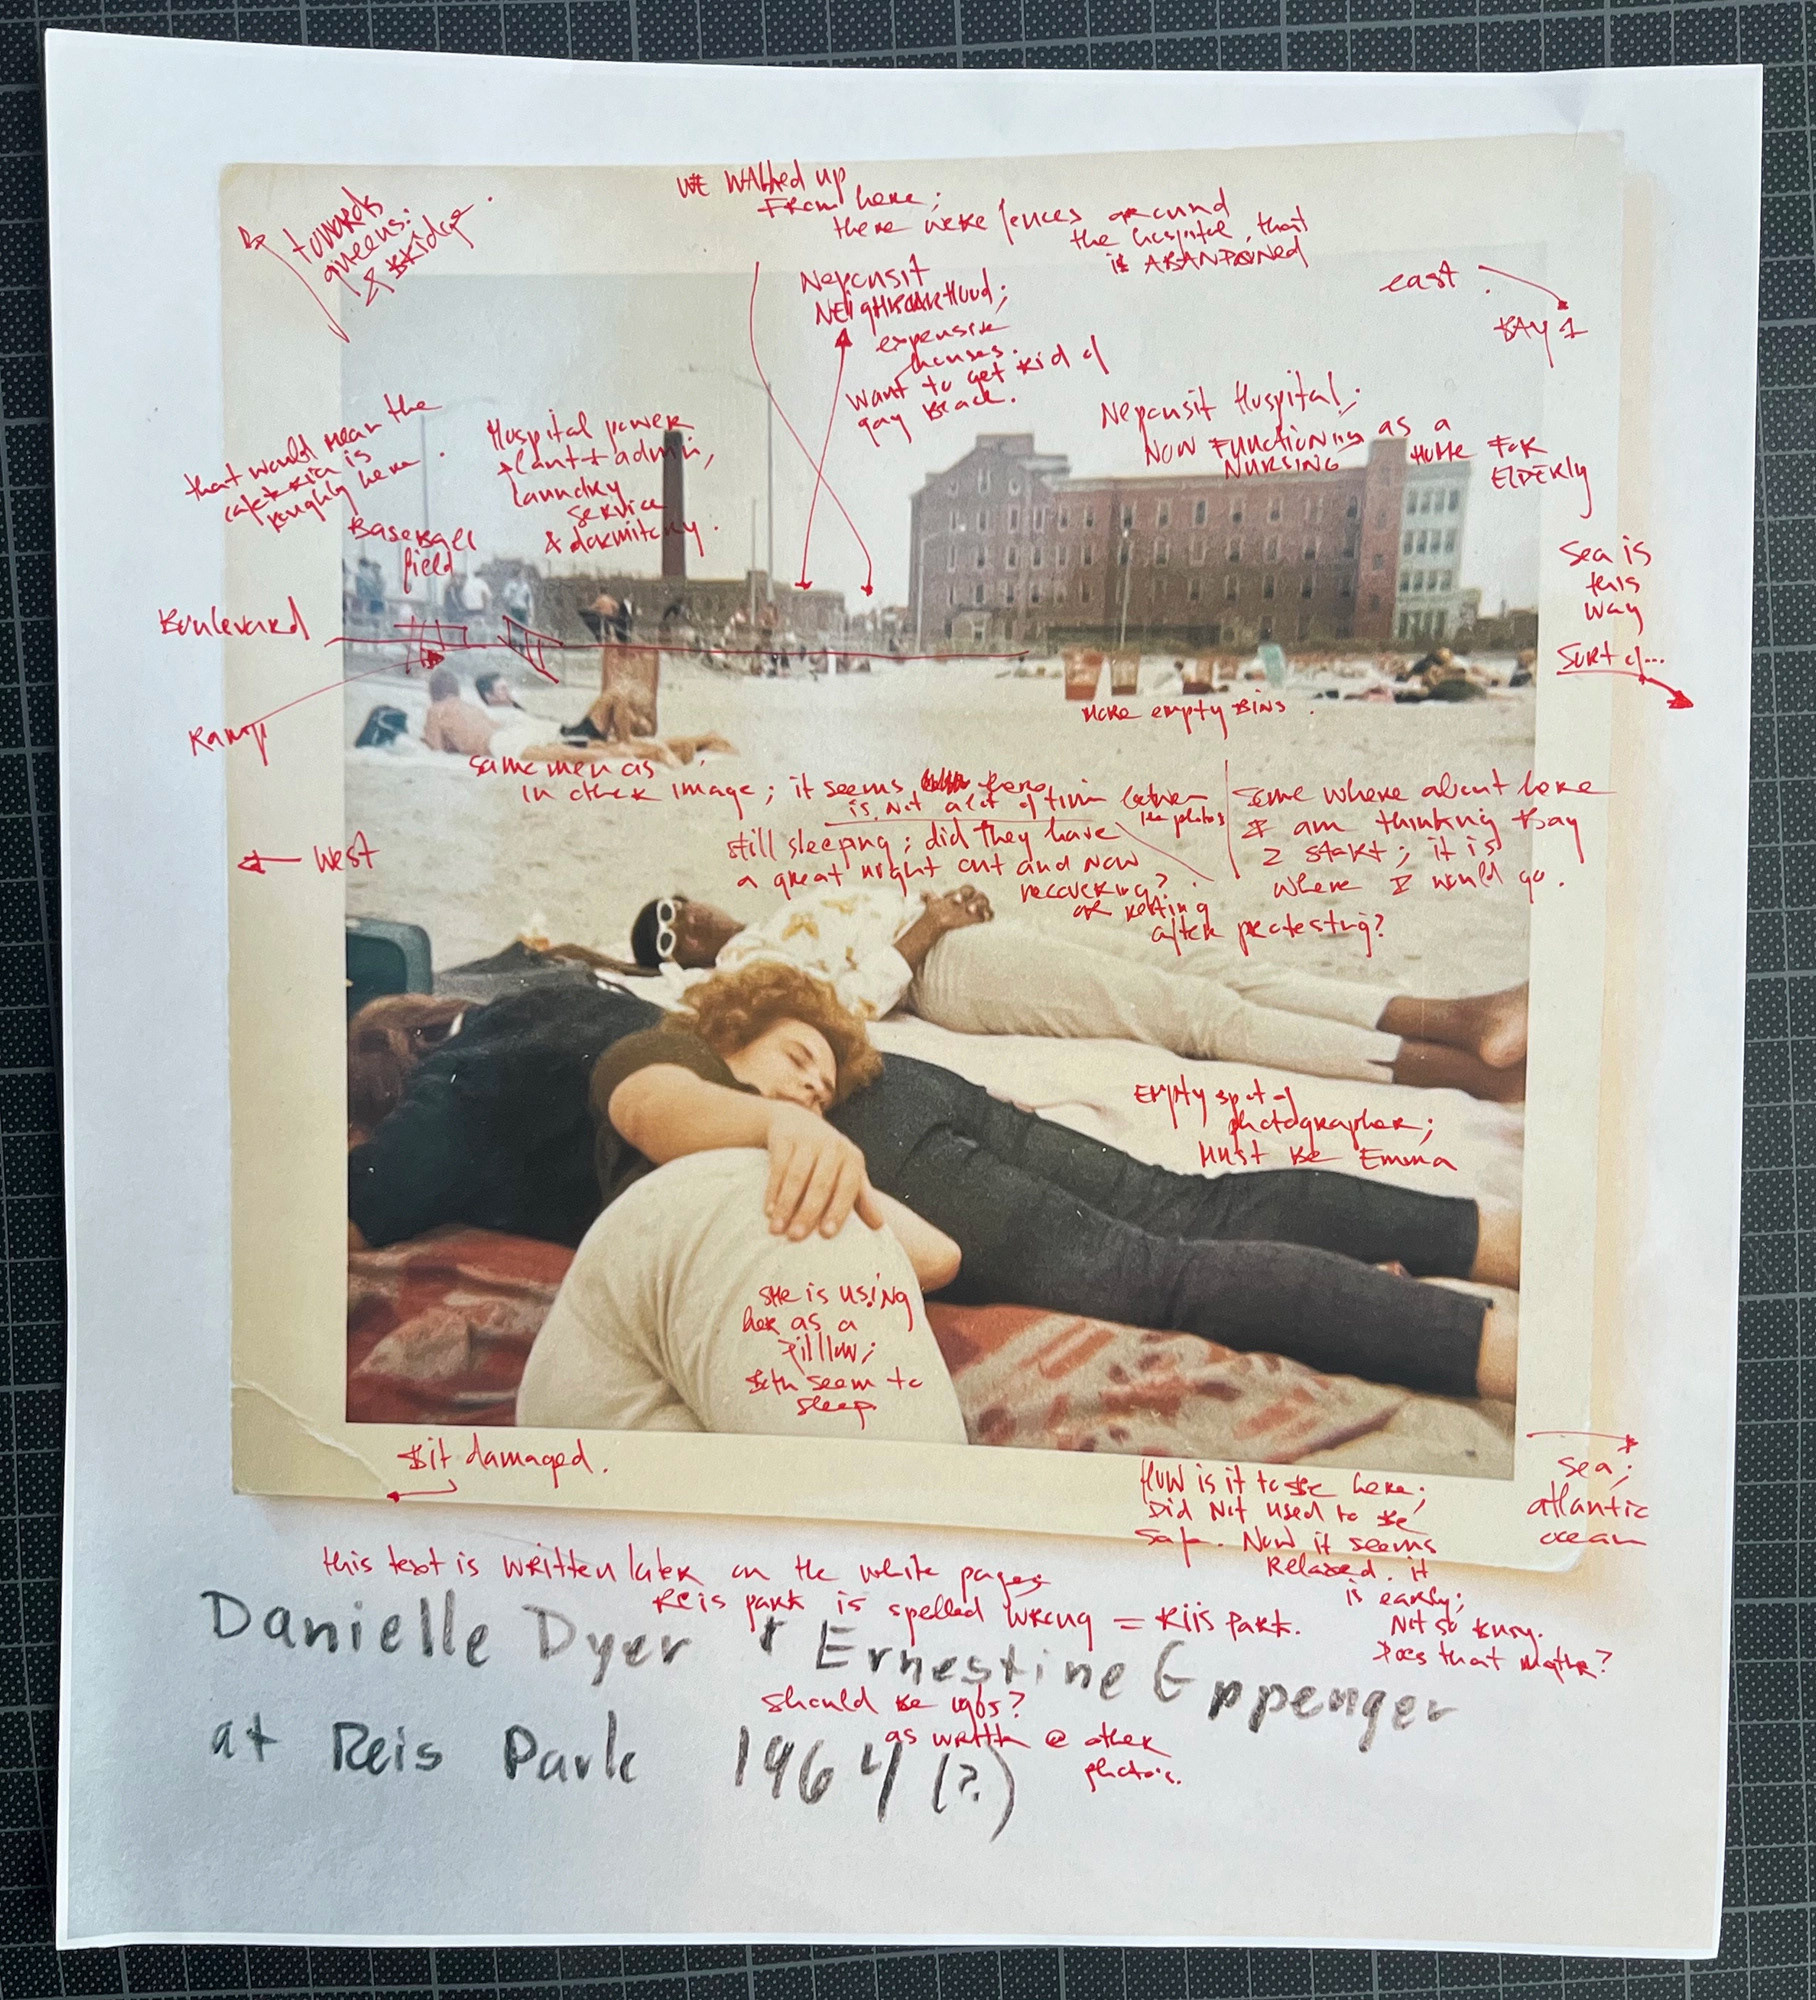 towards
queens:
& bridge.
we walked up
from here;
there were fences around
the hospital, that
is ABANDONED
Neponsit
NEIGHBOURHOOD;
expensive
houses.
want to get rid of
gay beach.
east.
BAY 1
that would mean the
cafeteria is
roughly here.
Hospital power
plant + admin,
laundry
service
& dormitory.
Baseball
field
Neponsit Hospital;
NOW FUNCTIONING as a
NURSING HOME FOR
ELDERLY
Boulevard
Sea is
this
way
Sort of...
Ramp
more empty bins.
same men as
in other image; it seems there
is not a lot of time between
the photos
still sleeping; did they have
a great night out and now
recovering?
or resting
after protesting?
Some where about here
I am thinking Bay
2 start; it is
where I would go.
West
Empty spot of
photographer;
Must be Emma
She is using
her as a
pilllow;
Both seem to
sleep.
Bit damaged.
How is it to be here;
Did not used to be
safe. Now it seems
Relaxed. it
is early;
Not so busy.
Does that matter?
sea;
atlantic
ocean
this text is written later on the white pages
Reis park is spelled wrong = Riis Park.
Danielle Dyer + Ernestine Eppenger
should be 1965?
as written @ other
photo's.
at Reis Park 1964 (?)